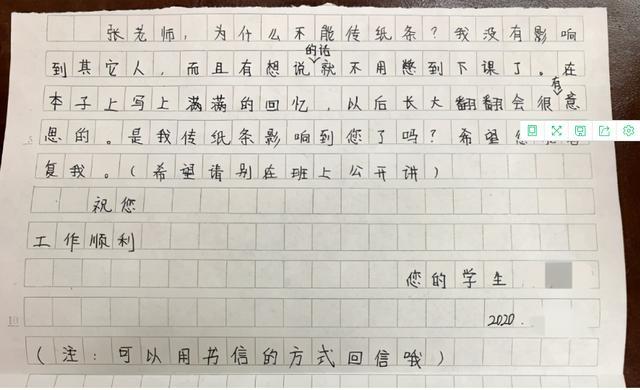 张老师，为什么不能传纸条？我没有影响
到其它人，而且有想说的话就不用憋到下课了。在
本子上写上满满的回忆，以后长大翻翻会很有意
思的。是我传纸条影响到您了吗？希望您
复我。（希望请别在班上公开讲）
祝您
工作顺利
您的学生
2020.
（注：可以用书信的方式回信哦）